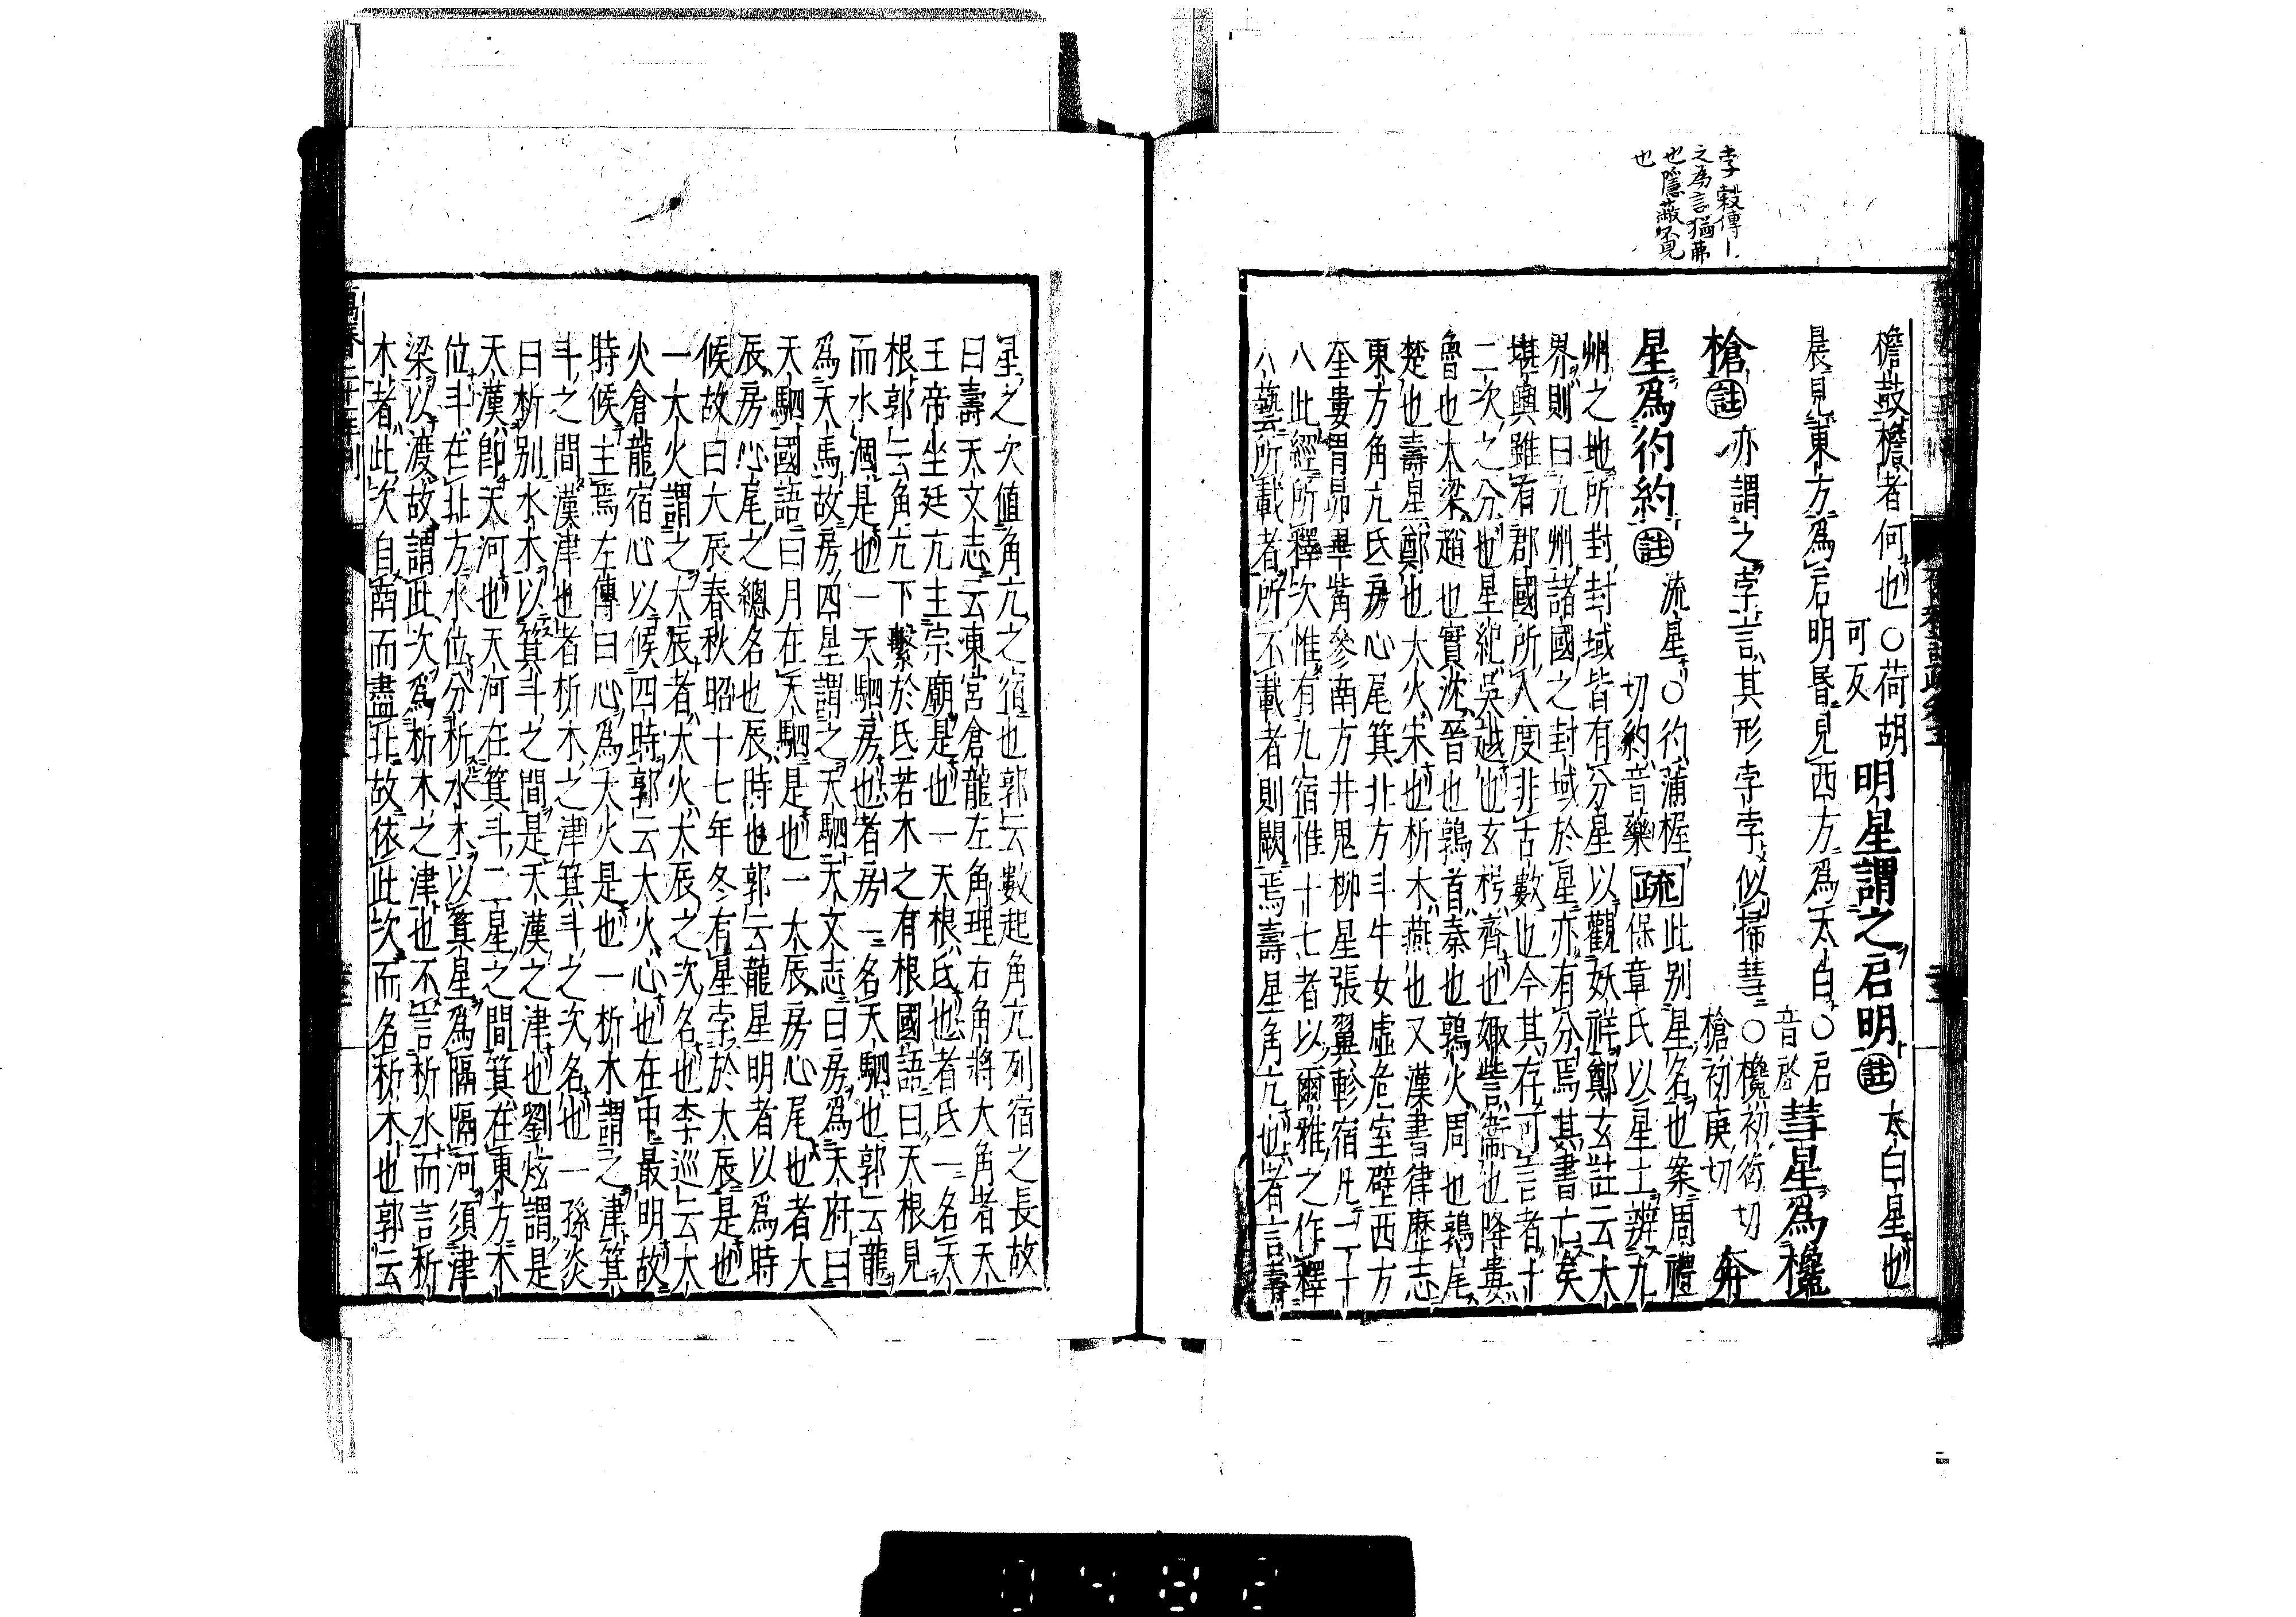 孛 穀傳｜
之為言猶茀
也隱蔽不見
也
檐鼓檐者何也〇荷胡
可反
明星謂之启明
註
太白星也
晨見東方為启明昏見西方為太白〇启
音啓
彗星爲欃
槍
註
亦謂之孛言其形孛孛似掃彗〇欃初銜切
槍初庚切
奔
星爲彴約
註
流星〇彴蒲樨
切約音藥
疏
此別星名也案周禮
保章氏以星土辨九
州之地所封封域皆有分星以觀妖祥鄭玄註云大
界則曰九州諸國之封域於星亦有分焉其書亡矣
堪輿雖有郡國所入度非古數也今其存可言者十
二次之分也星紀吳越也玄枵齊也娵訾衛也降婁
魯也大梁趙也實沈晉也鶉首秦也鶉火周也鶉尾
楚也壽星鄭也大火宋也析木燕也又漢書律歷志
東方角亢氐房心尾箕北方斗牛女虛危室壁西方
奎婁胃昴畢觜參南方井鬼柳星張翼軫宿凡二十
八此經所釋次惟有九宿惟十七者以爾雅之作釋
六藝所載者所不載者則闕焉壽星角亢也者言壽
星之次値角亢之宿也郭云數起角亢列宿之長故
曰壽天文志云東宮倉龍左角理右角將大角者天
王帝坐廷亢主宗廟是也一天根氐也者氐一名天
根郭云角亢下繫於氐若木之有根國語曰天根見
而水涸是也一天駟房也者房一名天駟也郭云龍
爲天馬故房四星謂之天駟天文志曰房爲天府曰
天駟國語曰月在天駟是也一大辰房心尾也者大
辰房心尾之總名也辰時也郭云龍星明者以爲時
候故曰大辰春秋昭十七年冬有星孛於大辰是也
一大火謂之大辰者大火大辰之次名也李巡云大
火倉龍宿心以候四時郭云大火心也在中最明故
時候主焉左傳曰心爲大火是也一析木謂之津箕
斗之間漢津也者析木之津箕斗之次名也一孫炎
曰析別水木以箕斗之間是天漢之津也劉炫謂是
天漢即天河也天河在箕斗二星之間箕在東方木
位斗在北方水位分析水木以箕星爲隔隔河須津
梁以渡故謂此次爲析木之津也不言析水而言析
木者此次自南而盡北故依此次而名析木也郭云